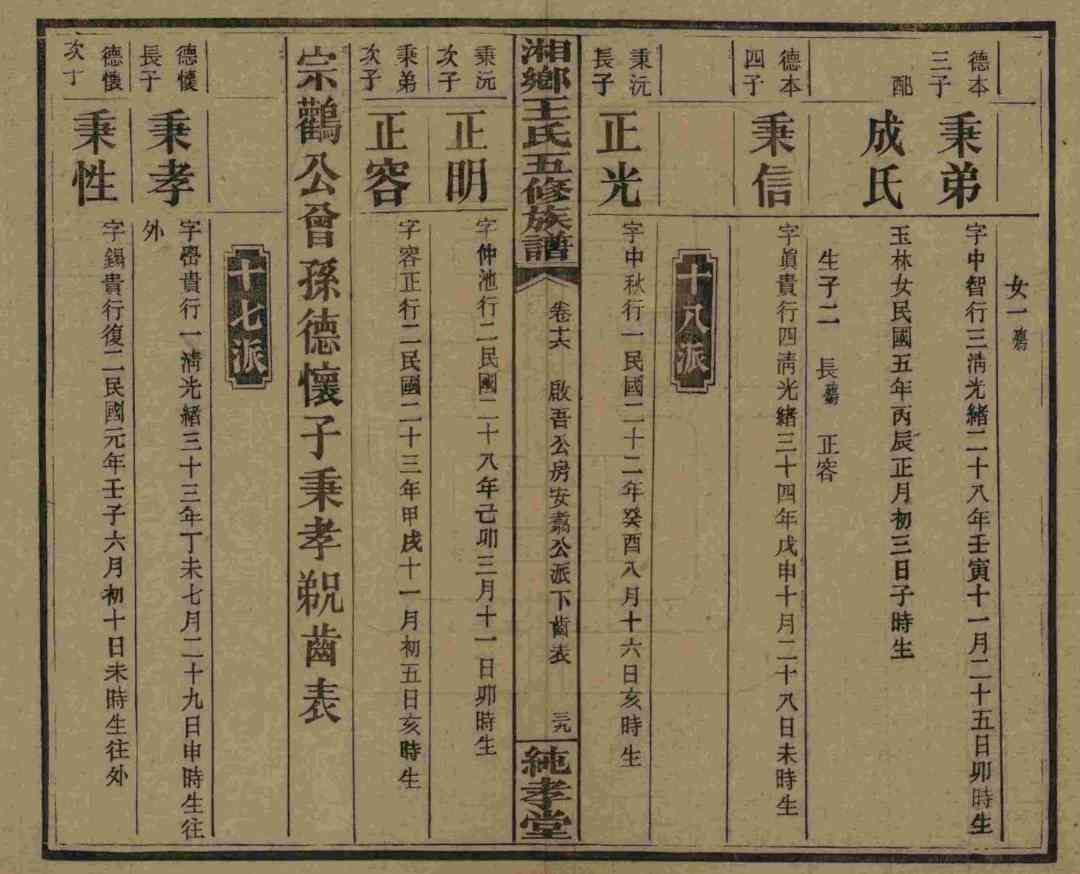 女一殤
德本三子
秉弟
字中智行三淸光緒二十八年壬寅十一月二十五日卯時生
配
成氏
玉林女民國五年丙辰正月初三日子時生
生子二 長殤 正容
德本四子
秉信
字眞貴行四淸光緒三十四年戊申十月二十八日未時生
十八派
秉沅長子
正光
字中秋行一民國二十二年癸酉八月十六日亥時生
湘鄉王氏五修族譜
卷十六 啟吾公房安翥公派下齒表 三九
純孝堂
秉沅次子
正明
字仲池行二民國二十八年己卯三月十一日卯時生
秉弟次子
正容
字容正行二民國二十三年甲戌十一月初五日亥時生
宗鸛公曾孫德懷子秉孝派齒表
十七派
德懷長子
秉孝
字譽貴行一淸光緒三十三年丁未七月二十九日申時生往
外
德懷次子
秉性
字錫貴行復二民國元年壬子六月初十日未時生往外